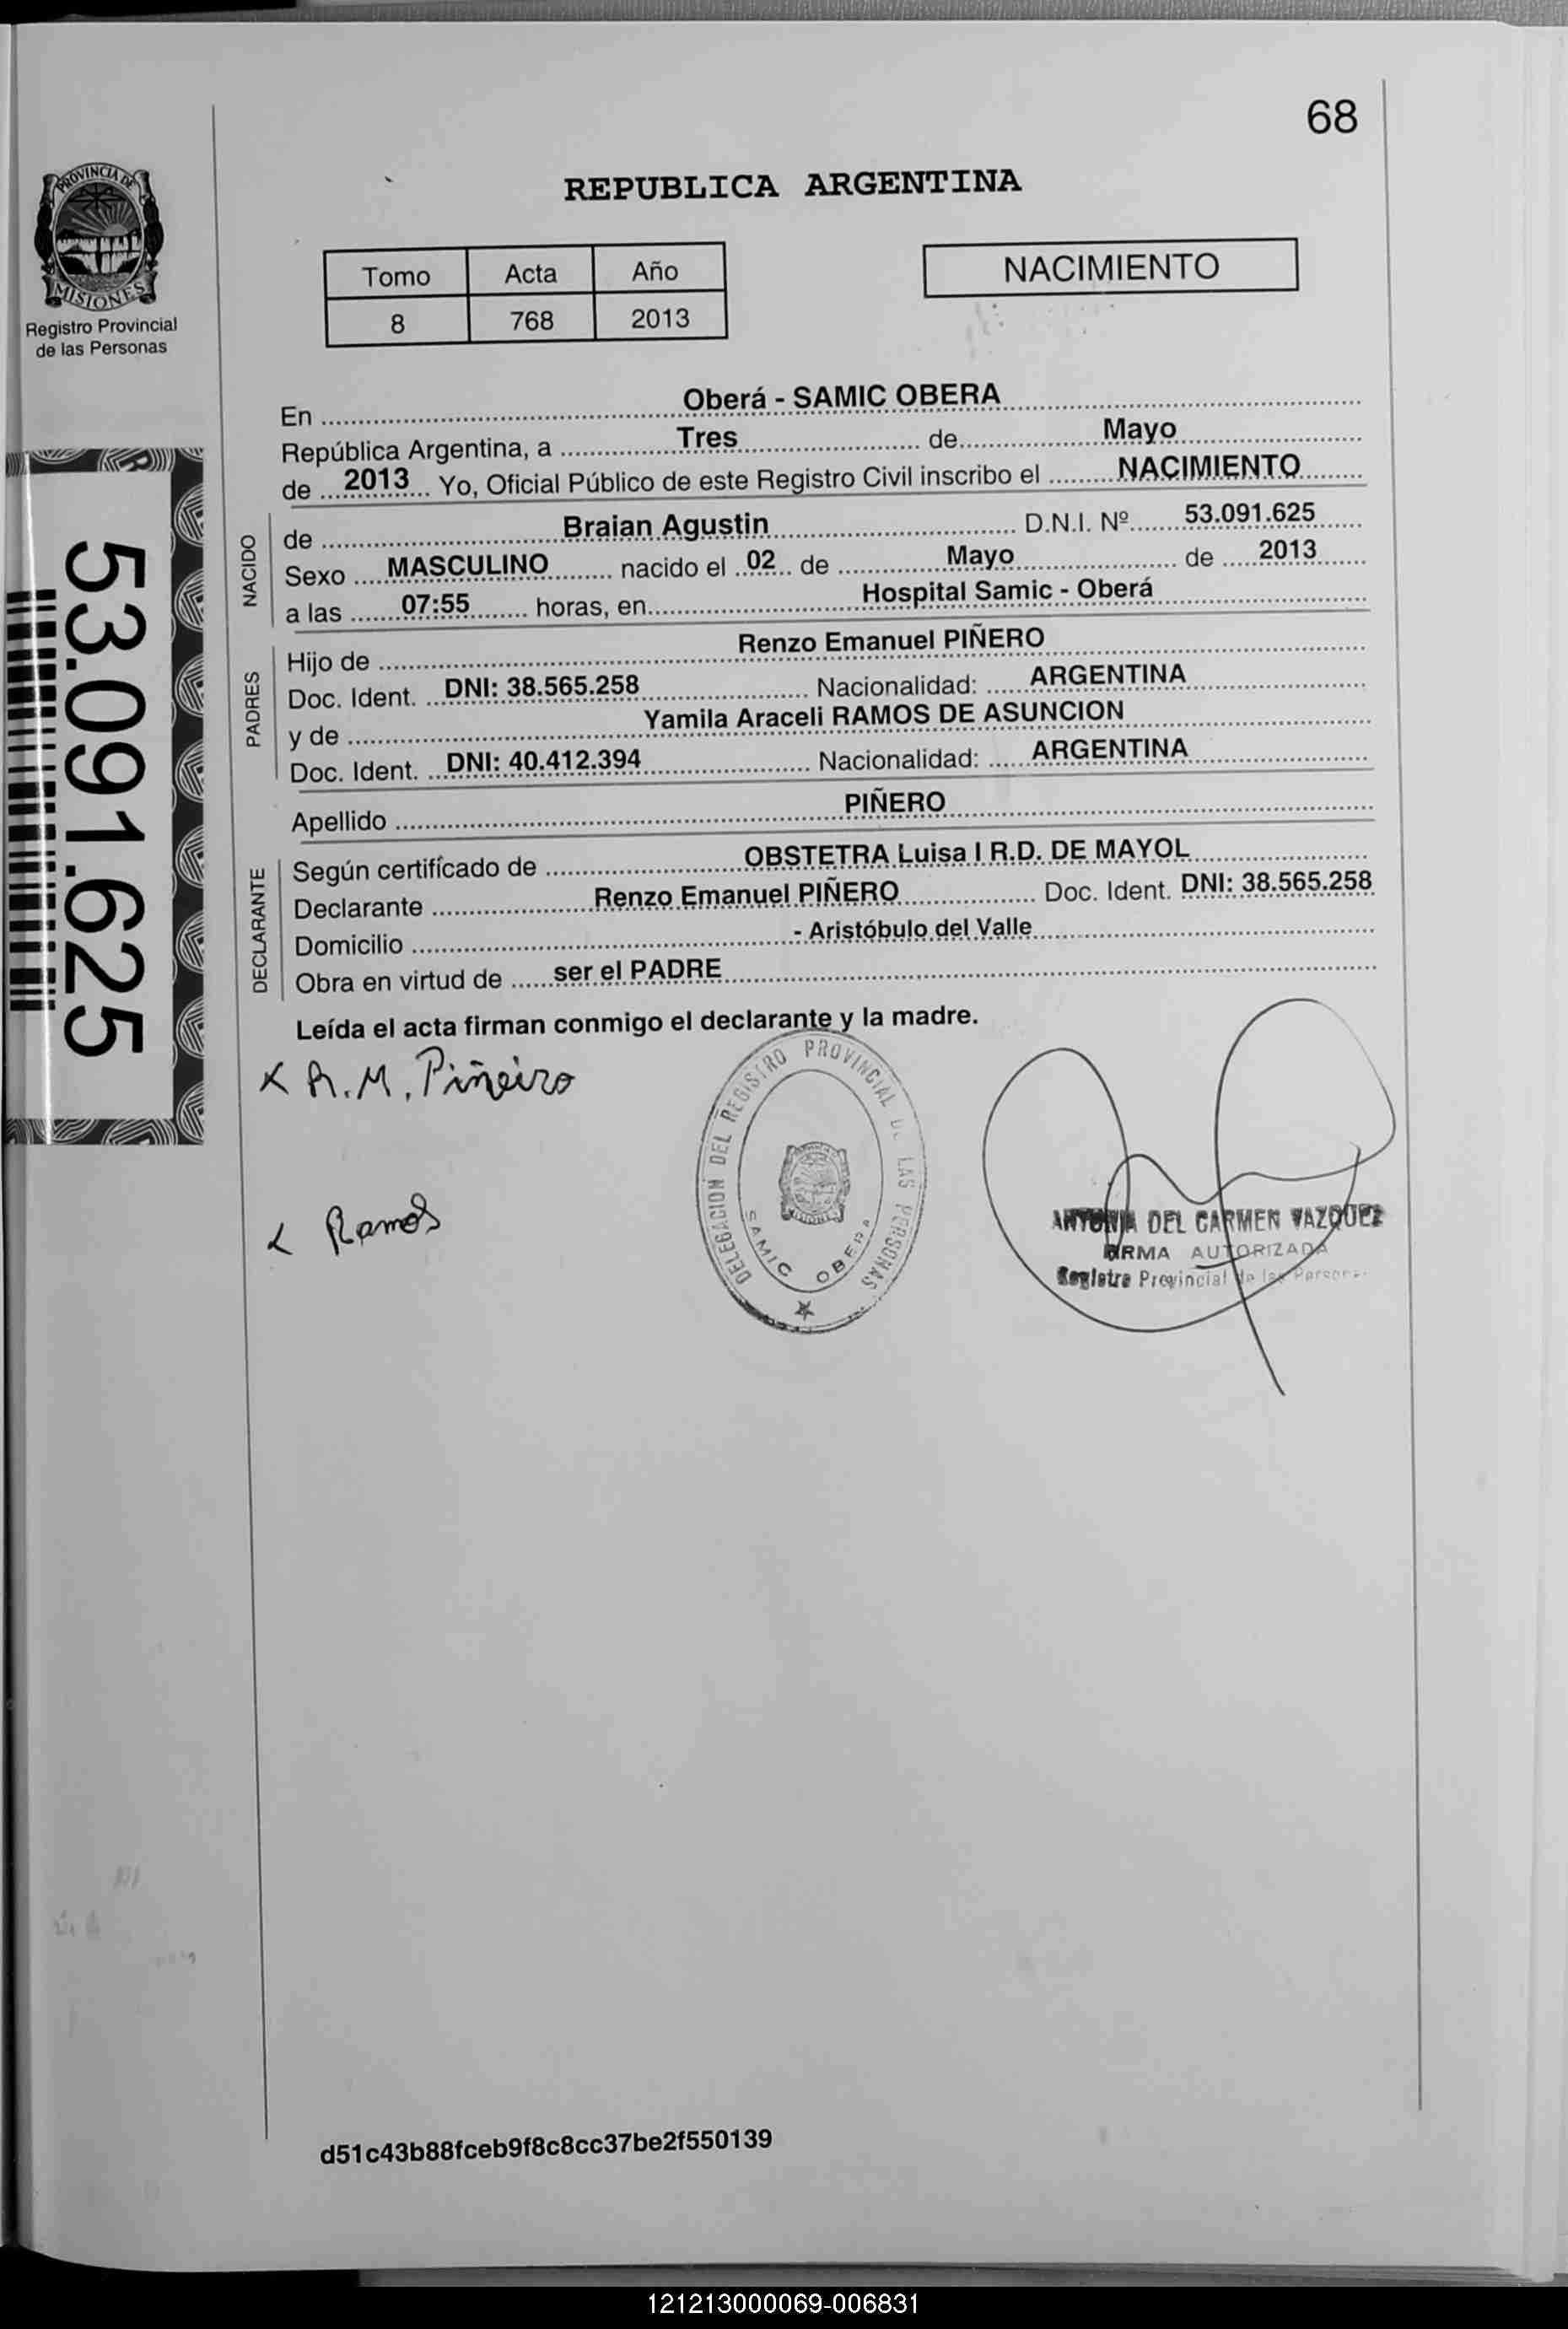 68
PROVINCIA DE
MISIONES
Registro Provincial
de las Personas
REPUBLICA ARGENTINA
Tomo Acta Año
8 768 2013
NACIMIENTO
53.091.625
En Oberá - SAMIC OBERA
República Argentina, a Tres de Mayo
de 2013 Yo, Oficial Público de este Registro Civil inscribo el NACIMIENTO
NACIDO
de Braian Agustin D.N.I. Nº 53.091.625
Sexo MASCULINO nacido el 02 de Mayo de 2013
a las 07:55 horas, en Hospital Samic - Oberá
PADRES
Hijo de Renzo Emanuel PIÑERO
Doc. Ident. DNI: 38.565.258 Nacionalidad: ARGENTINA
y de Yamila Araceli RAMOS DE ASUNCION
Doc. Ident. DNI: 40.412.394 Nacionalidad: ARGENTINA
Apellido PIÑERO
DECLARANTE
Según certificado de OBSTETRA Luisa I R.D. DE MAYOL
Declarante Renzo Emanuel PIÑERO Doc. Ident. DNI: 38.565.258
Domicilio - Aristóbulo del Valle
Obra en virtud de ser el PADRE
Leída el acta firman conmigo el declarante y la madre.
x R.M. Piñeiro
x Ramos
DELEGACION DEL REGISTRO PROVINCIAL DE LAS PERSONAS
SAMIC OBERA
ANTONIA DEL CARMEN VAZQUEZ
FIRMA AUTORIZADA
Registro Provincial de las Personas
d51c43b88fceb9f8c8cc37be2f550139
121213000069-006831